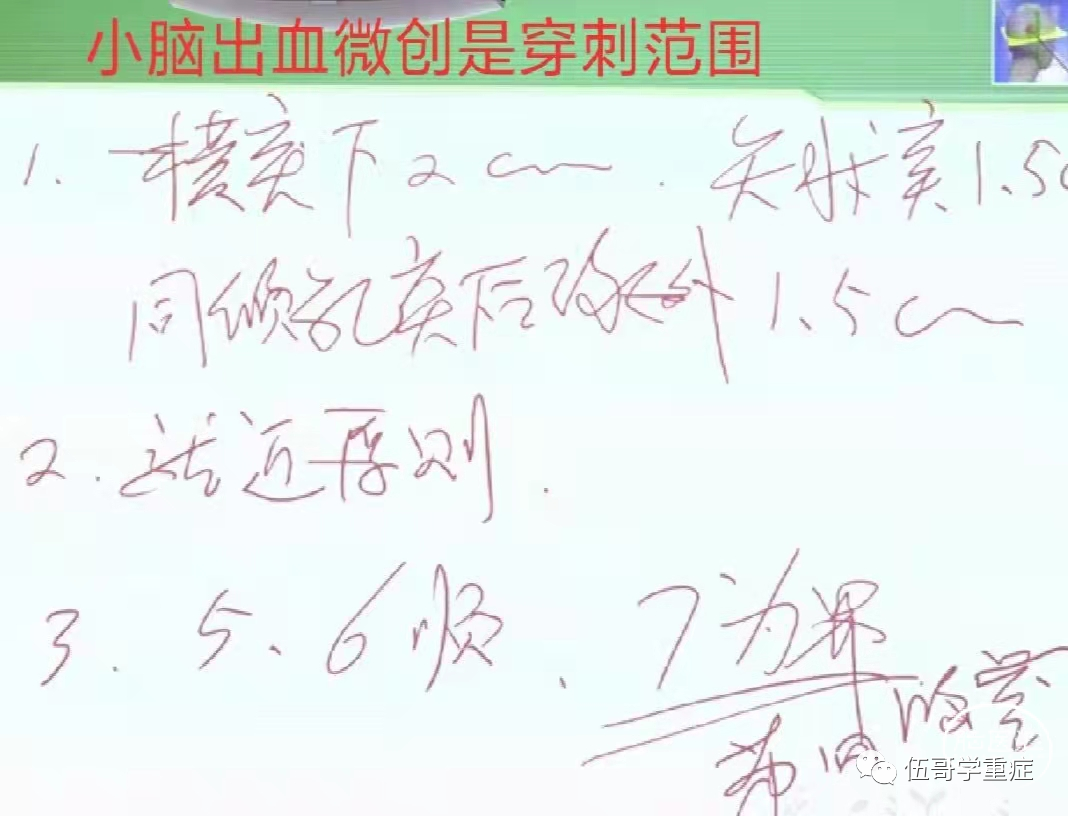 小脑出血微创是穿刺范围
1. 横突下2cm. 矢状突1.5c
同侧乳突后缘外1.5cm
2. 就近原则.
3. 5、6顺、7为界
第四脑室
伍哥学重症